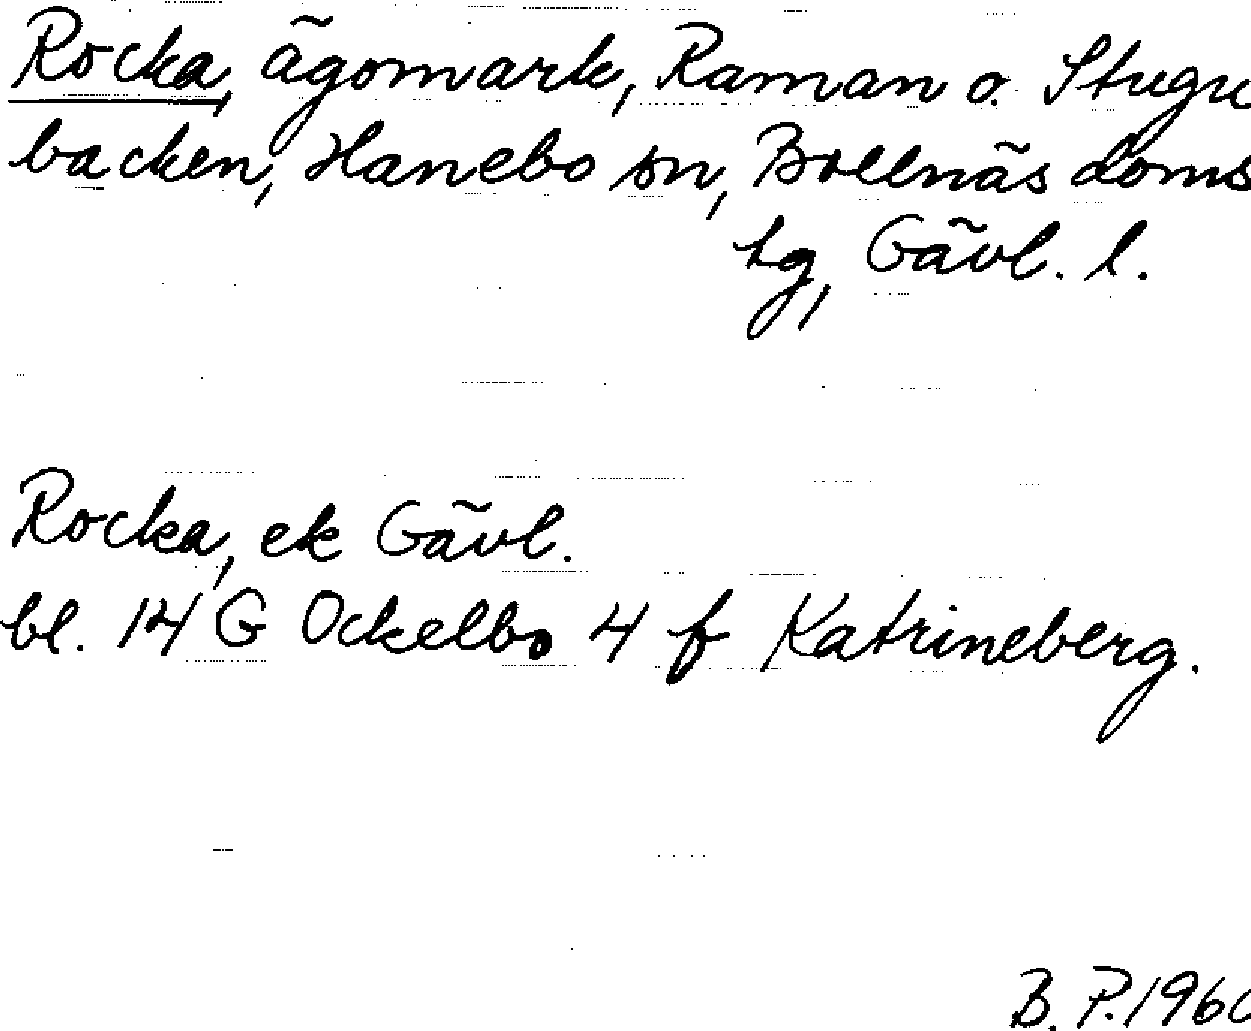 Rocka, ägomark, Raman o. Stugu
backen, Hanebo sn, Bollnäs doms
hg, Gävl. l.
Rocka, ek Gävl.
bl. 14 G Ockelbo 4 f Katrineberg.
B. P. 1960